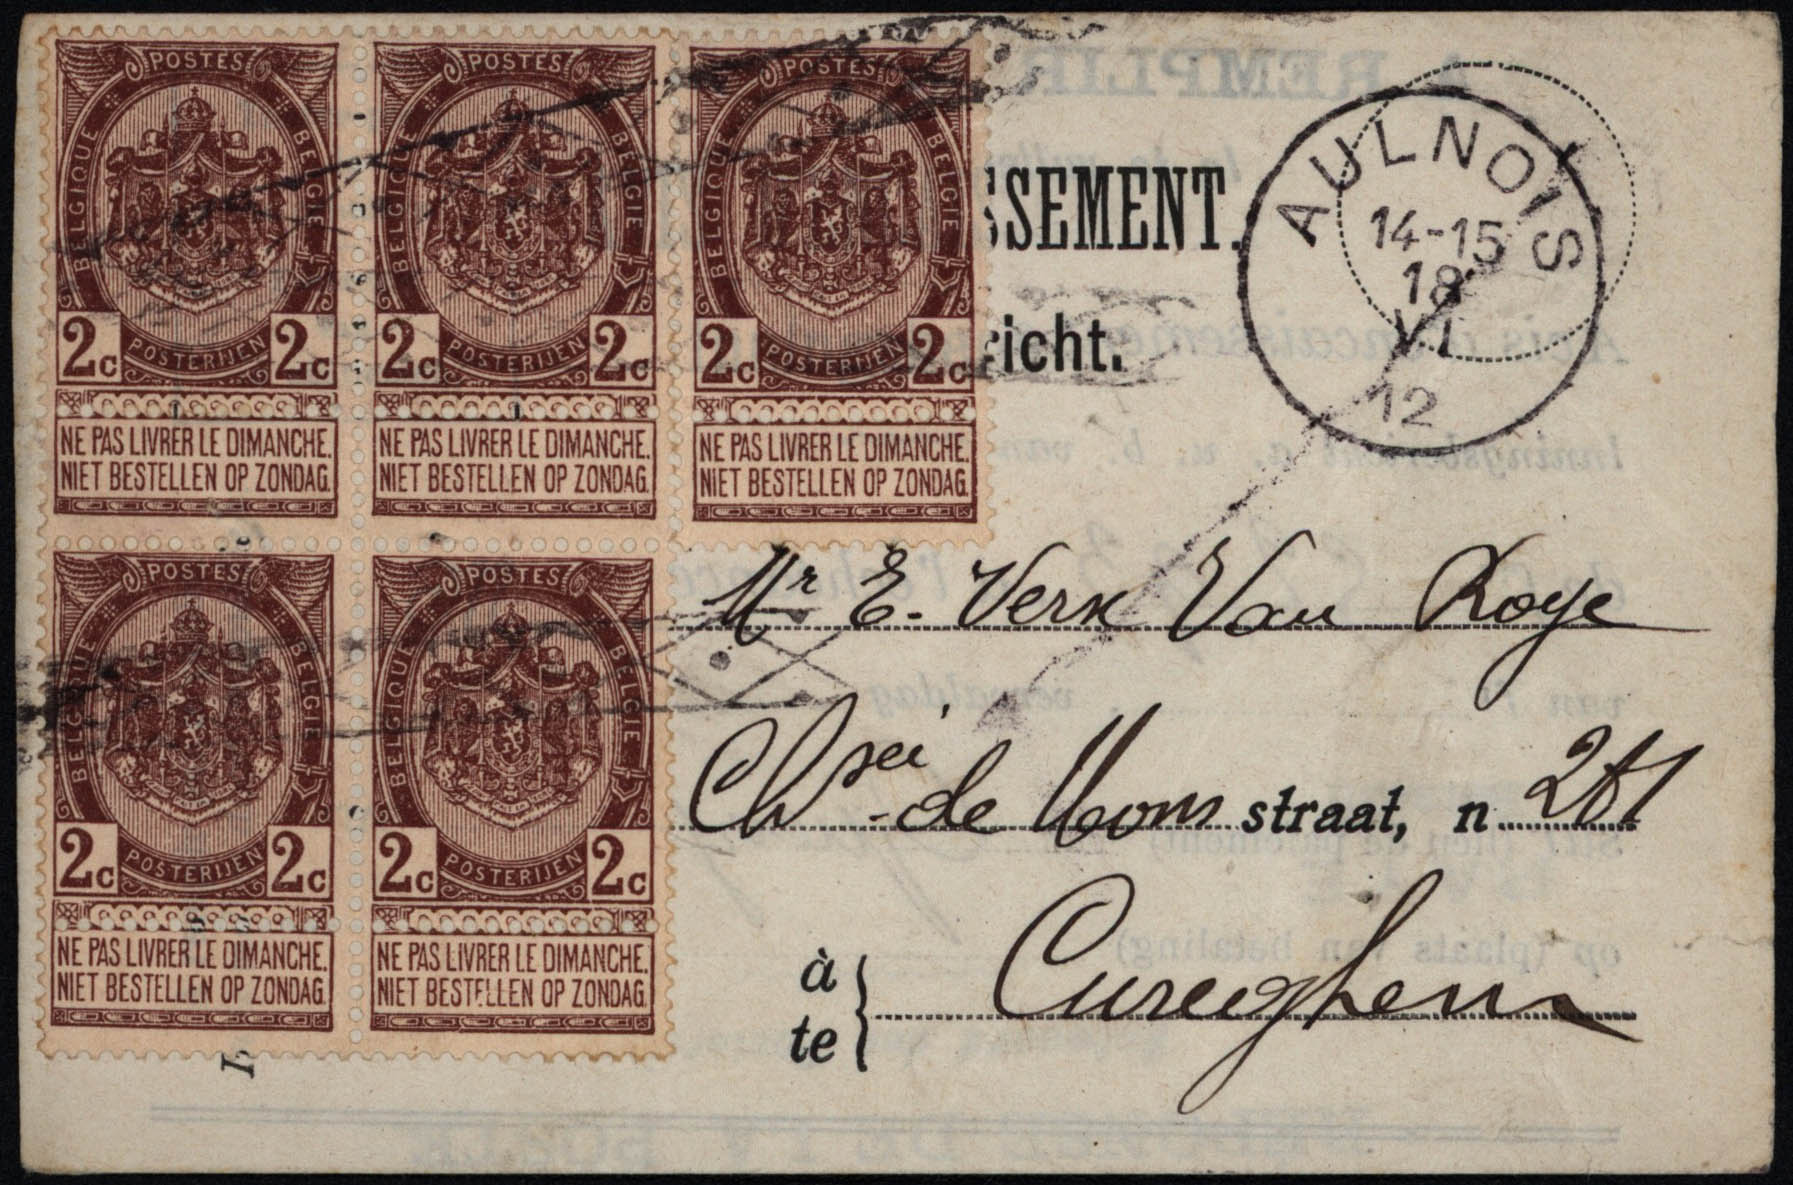 POSTES POSTES POSTES
BELGIQUE BELGIE BELGIQUE BELGIE BELGIQUE BELGIE
2c POSTERIJEN 2c 2c POSTERIJEN 2c 2c POSTERIJEN 2c
NE PAS LIVRER LE DIMANCHE. NE PAS LIVRER LE DIMANCHE. NE PAS LIVRER LE DIMANCHE.
NIET BESTELLEN OP ZONDAG. NIET BESTELLEN OP ZONDAG. NIET BESTELLEN OP ZONDAG.
SSEMENT.
richt.
AULNOIS
14-15
18
VI
12
POSTES POSTES
BELGIQUE BELGIE BELGIQUE BELGIE
2c POSTERIJEN 2c 2c POSTERIJEN 2c
NE PAS LIVRER LE DIMANCHE. NE PAS LIVRER LE DIMANCHE.
NIET BESTELLEN OP ZONDAG. NIET BESTELLEN OP ZONDAG.
Mr E. Van Roye
de Mons straat, n
à
te
Cureghem